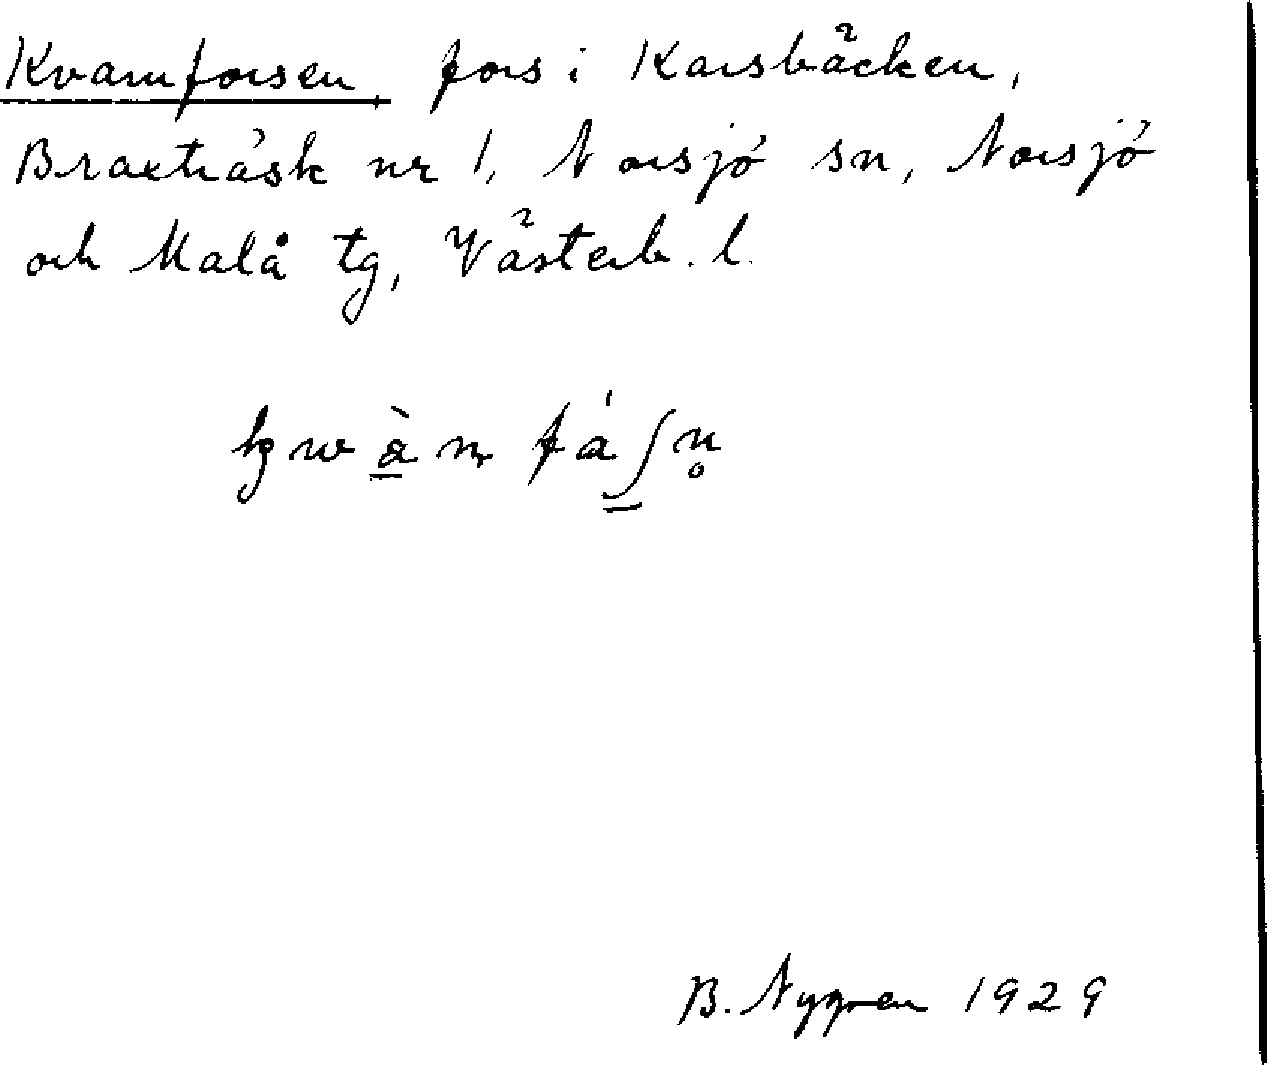 Kvarnforsen, fors i Karsbäcken,
Braxträsk nr 1, Norsjö sn, Norsjö
och Malå tg, Västerb. l.
B. Nygren 1929